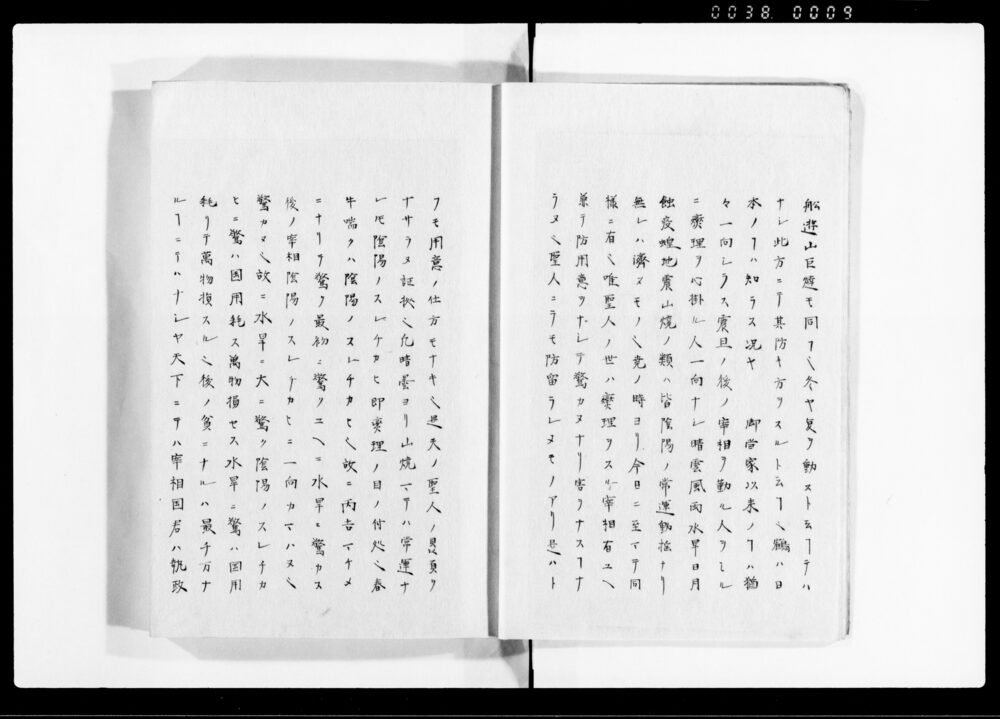 0038 0009
船遊山巨燵モ同フ〻冬ヤ夏ヲ動ヌト云フテハ
ナレ此方ニテ其防キ方ヲスルト云フ〻鶴ハ日
本ノフハ知ラス况ヤ 御當家以来ノフハ猶
々一向レラス震旦ノ後ノ宰相ヲ勤ル人ヲミル
ニ燮理ヲ心掛ル人一向ナレ晴雲風雨水旱日月
蝕疫蝗地震山焼ノ類ハ皆陰陽ノ常運動揺ナリ
無レハ濟ヌモノ〻堯ノ時ヨリ今日ニ至マテ同
様ニ有〻唯聖人ノ世ハ燮理ヲスル宰相有ユヘ
兼テ防用意ヲナレテ驚カヌナリ害ヲナスフナ
ラヌ〻聖人ニテモ防留ラレヌモノアリ是ハト
フモ用意ノ仕方モナキ〻逆天ノ聖人ノ具頂ケ
ナサラヌ証拠〻凡暗雲ヨリ山焼マテハ常運ナ
レ𪜈陰陽ノスレチカヒ即燮理ノ目ノ付処〻春
牛喘クハ陰陽ノスレチカヒ〻故ニ丙吉マチメ
ニナリヲ驚ク最初ニ驚クユヘニ水旱ニ驚カス
後ノ宰相陰陽ノスレチカヒニ一向カマハヌ〻
驚カヌ〻故ニ水旱ニ大ニ驚ク陰陽ノスレチカ
ヒニ驚ハ国用耗ス萬物損セス水旱ニ驚ハ国用
耗リテ萬物損スル〻後ノ貧ニナルハ最千万ナ
ルフニテハナレヤ天下ニテハ宰相国君ハ執政